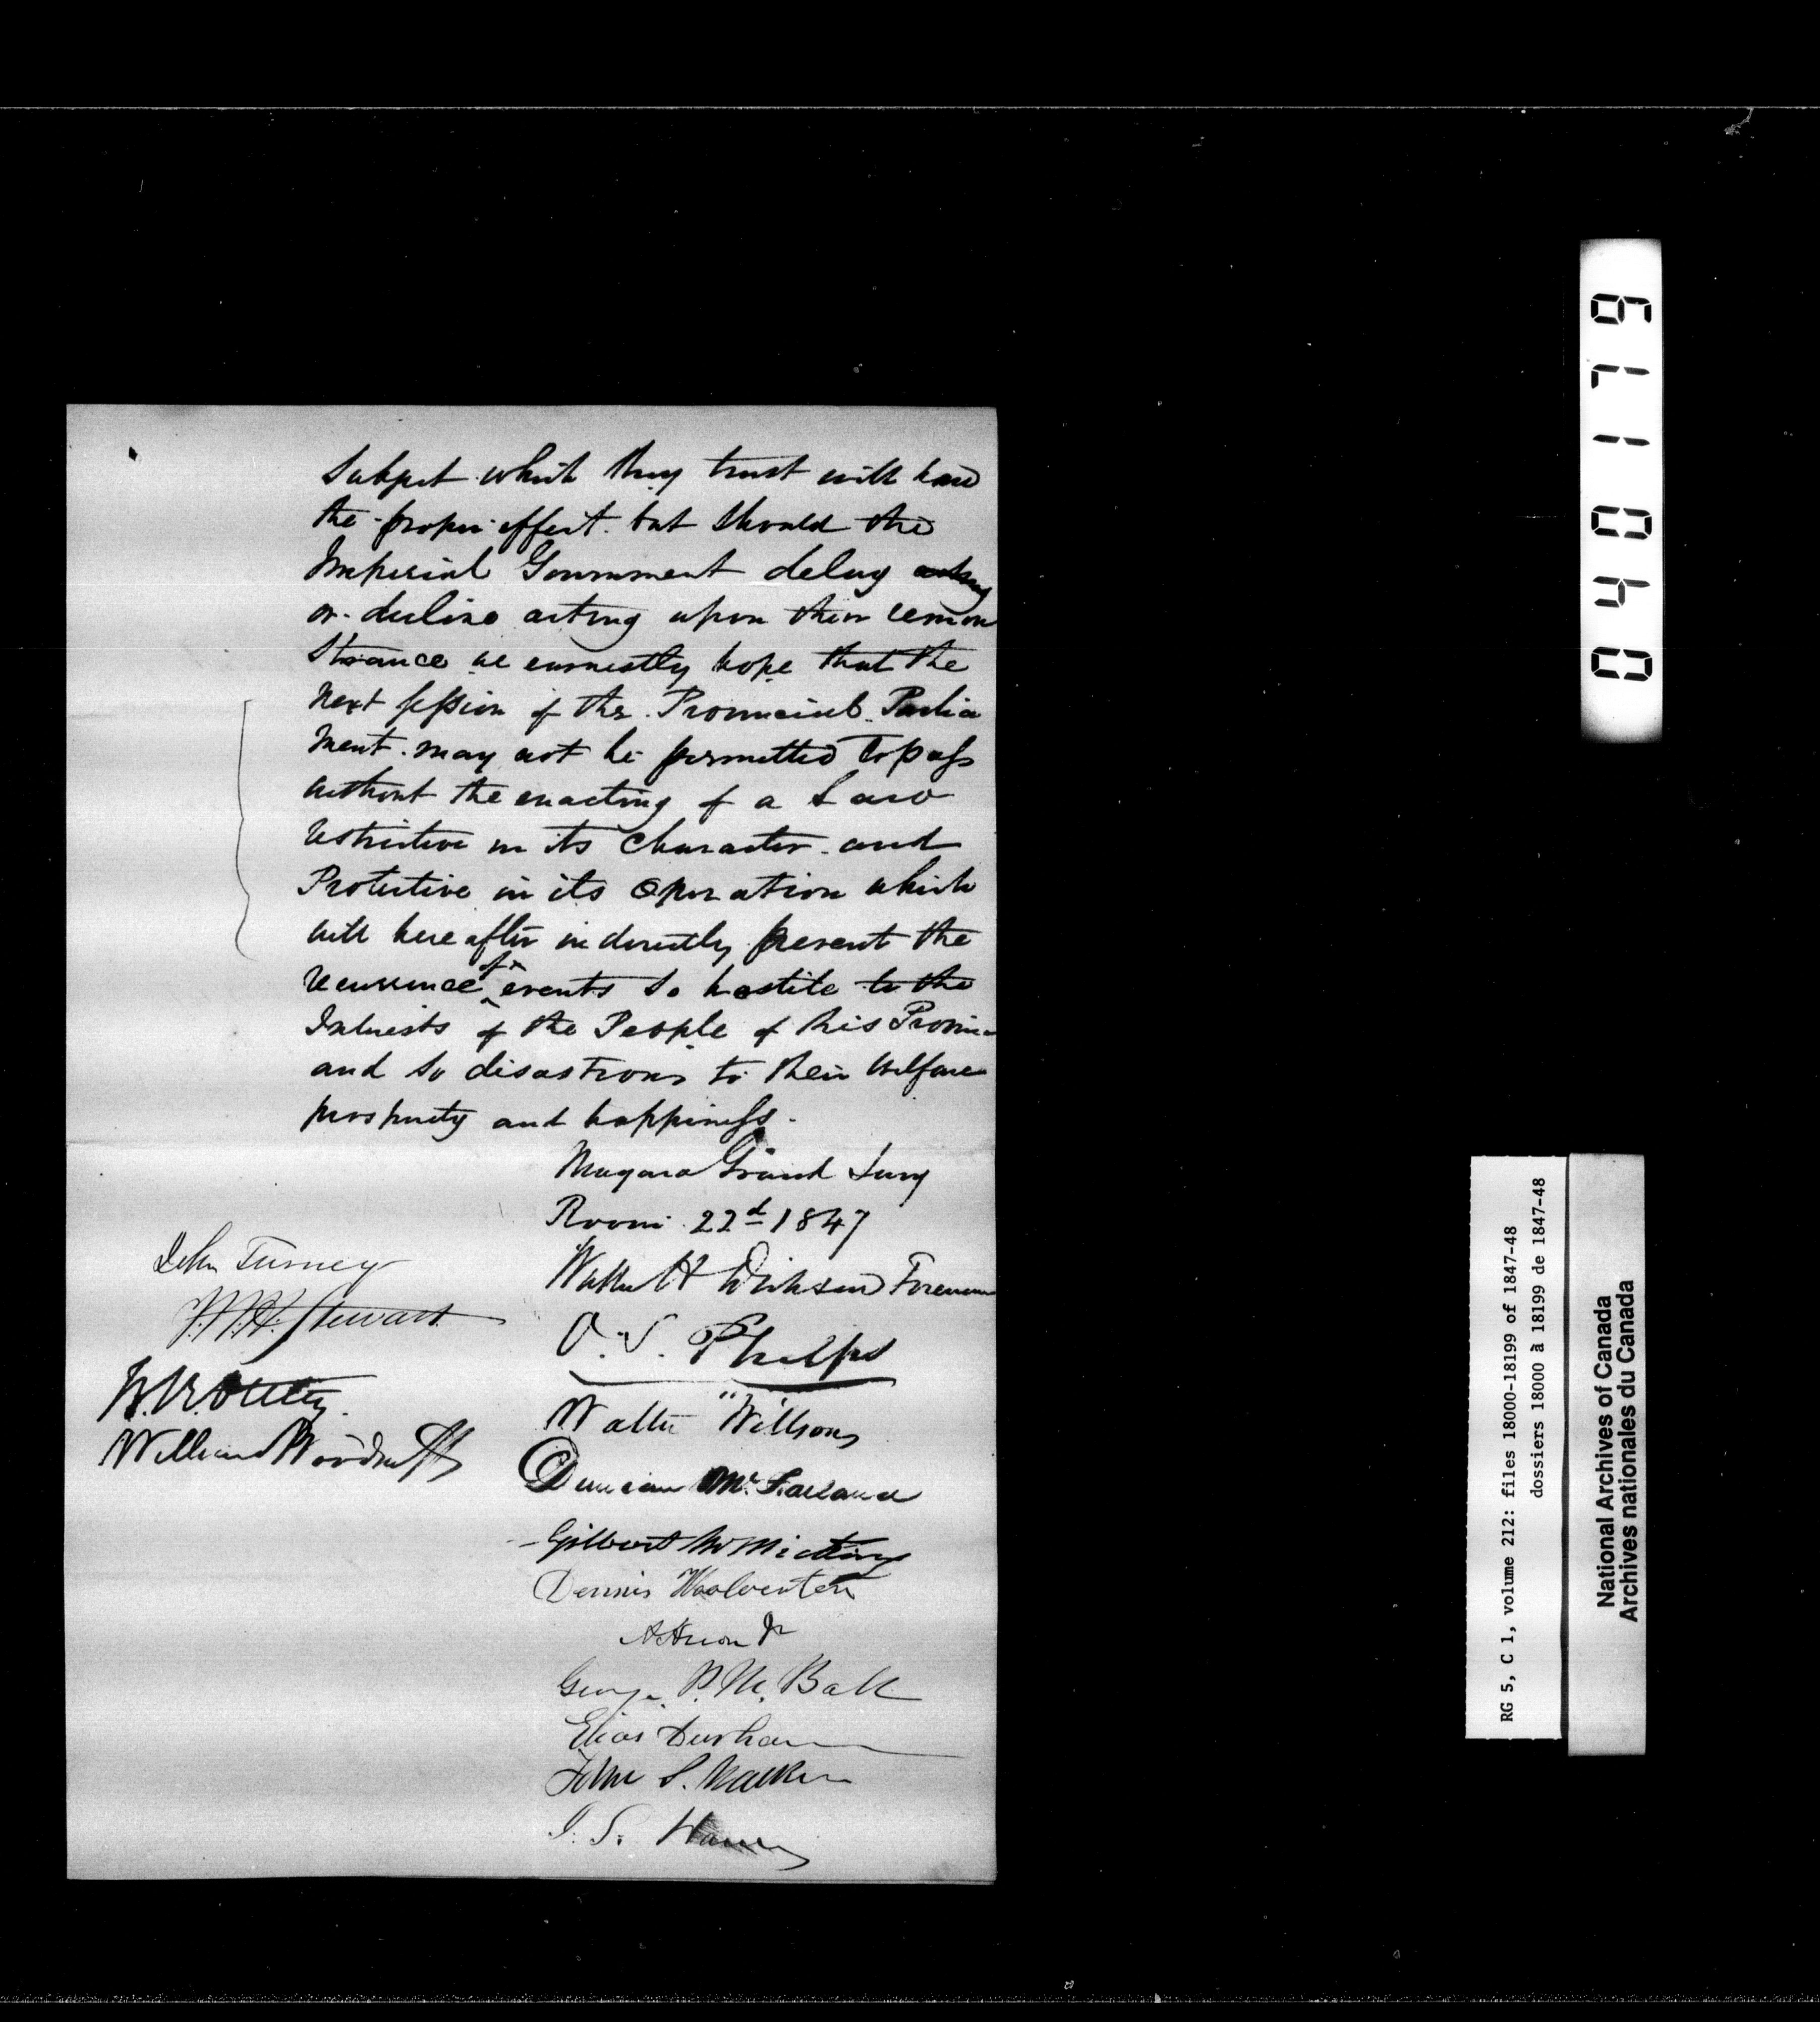 Subject which they trust will have
the proper effect. but should the
Imperial Government delay
or decline acting upon their remon
strance we earnestly hope that the
next session of the Provincial Parlia
ment. may not be permitted to pass
without the enacting of a Law
restrictive in its Character and
Protective in its Operation which
will hereafter indirectly prevent the
recurrence of events so hostile to the
Interests of the People of this Province
and so disastrous to their welfare
prosperity and happiness.
Niagara Grand Jury
Room 22d 1847
Walter H Dickson Foreman
O. S. Phelps
Walter Willson
Duncan McFarland
Gilbert McMicking
Dennis Woolverton
George P. M. Ball
Elias Durham
John S.
J. S.
John Turney
Stewart
William Woodruff
04179
RG 5, C 1, volume 212: files 18000-18199 of 1847-48
dossiers 18000 à 18199 de 1847-48
National Archives of Canada
Archives nationales du Canada